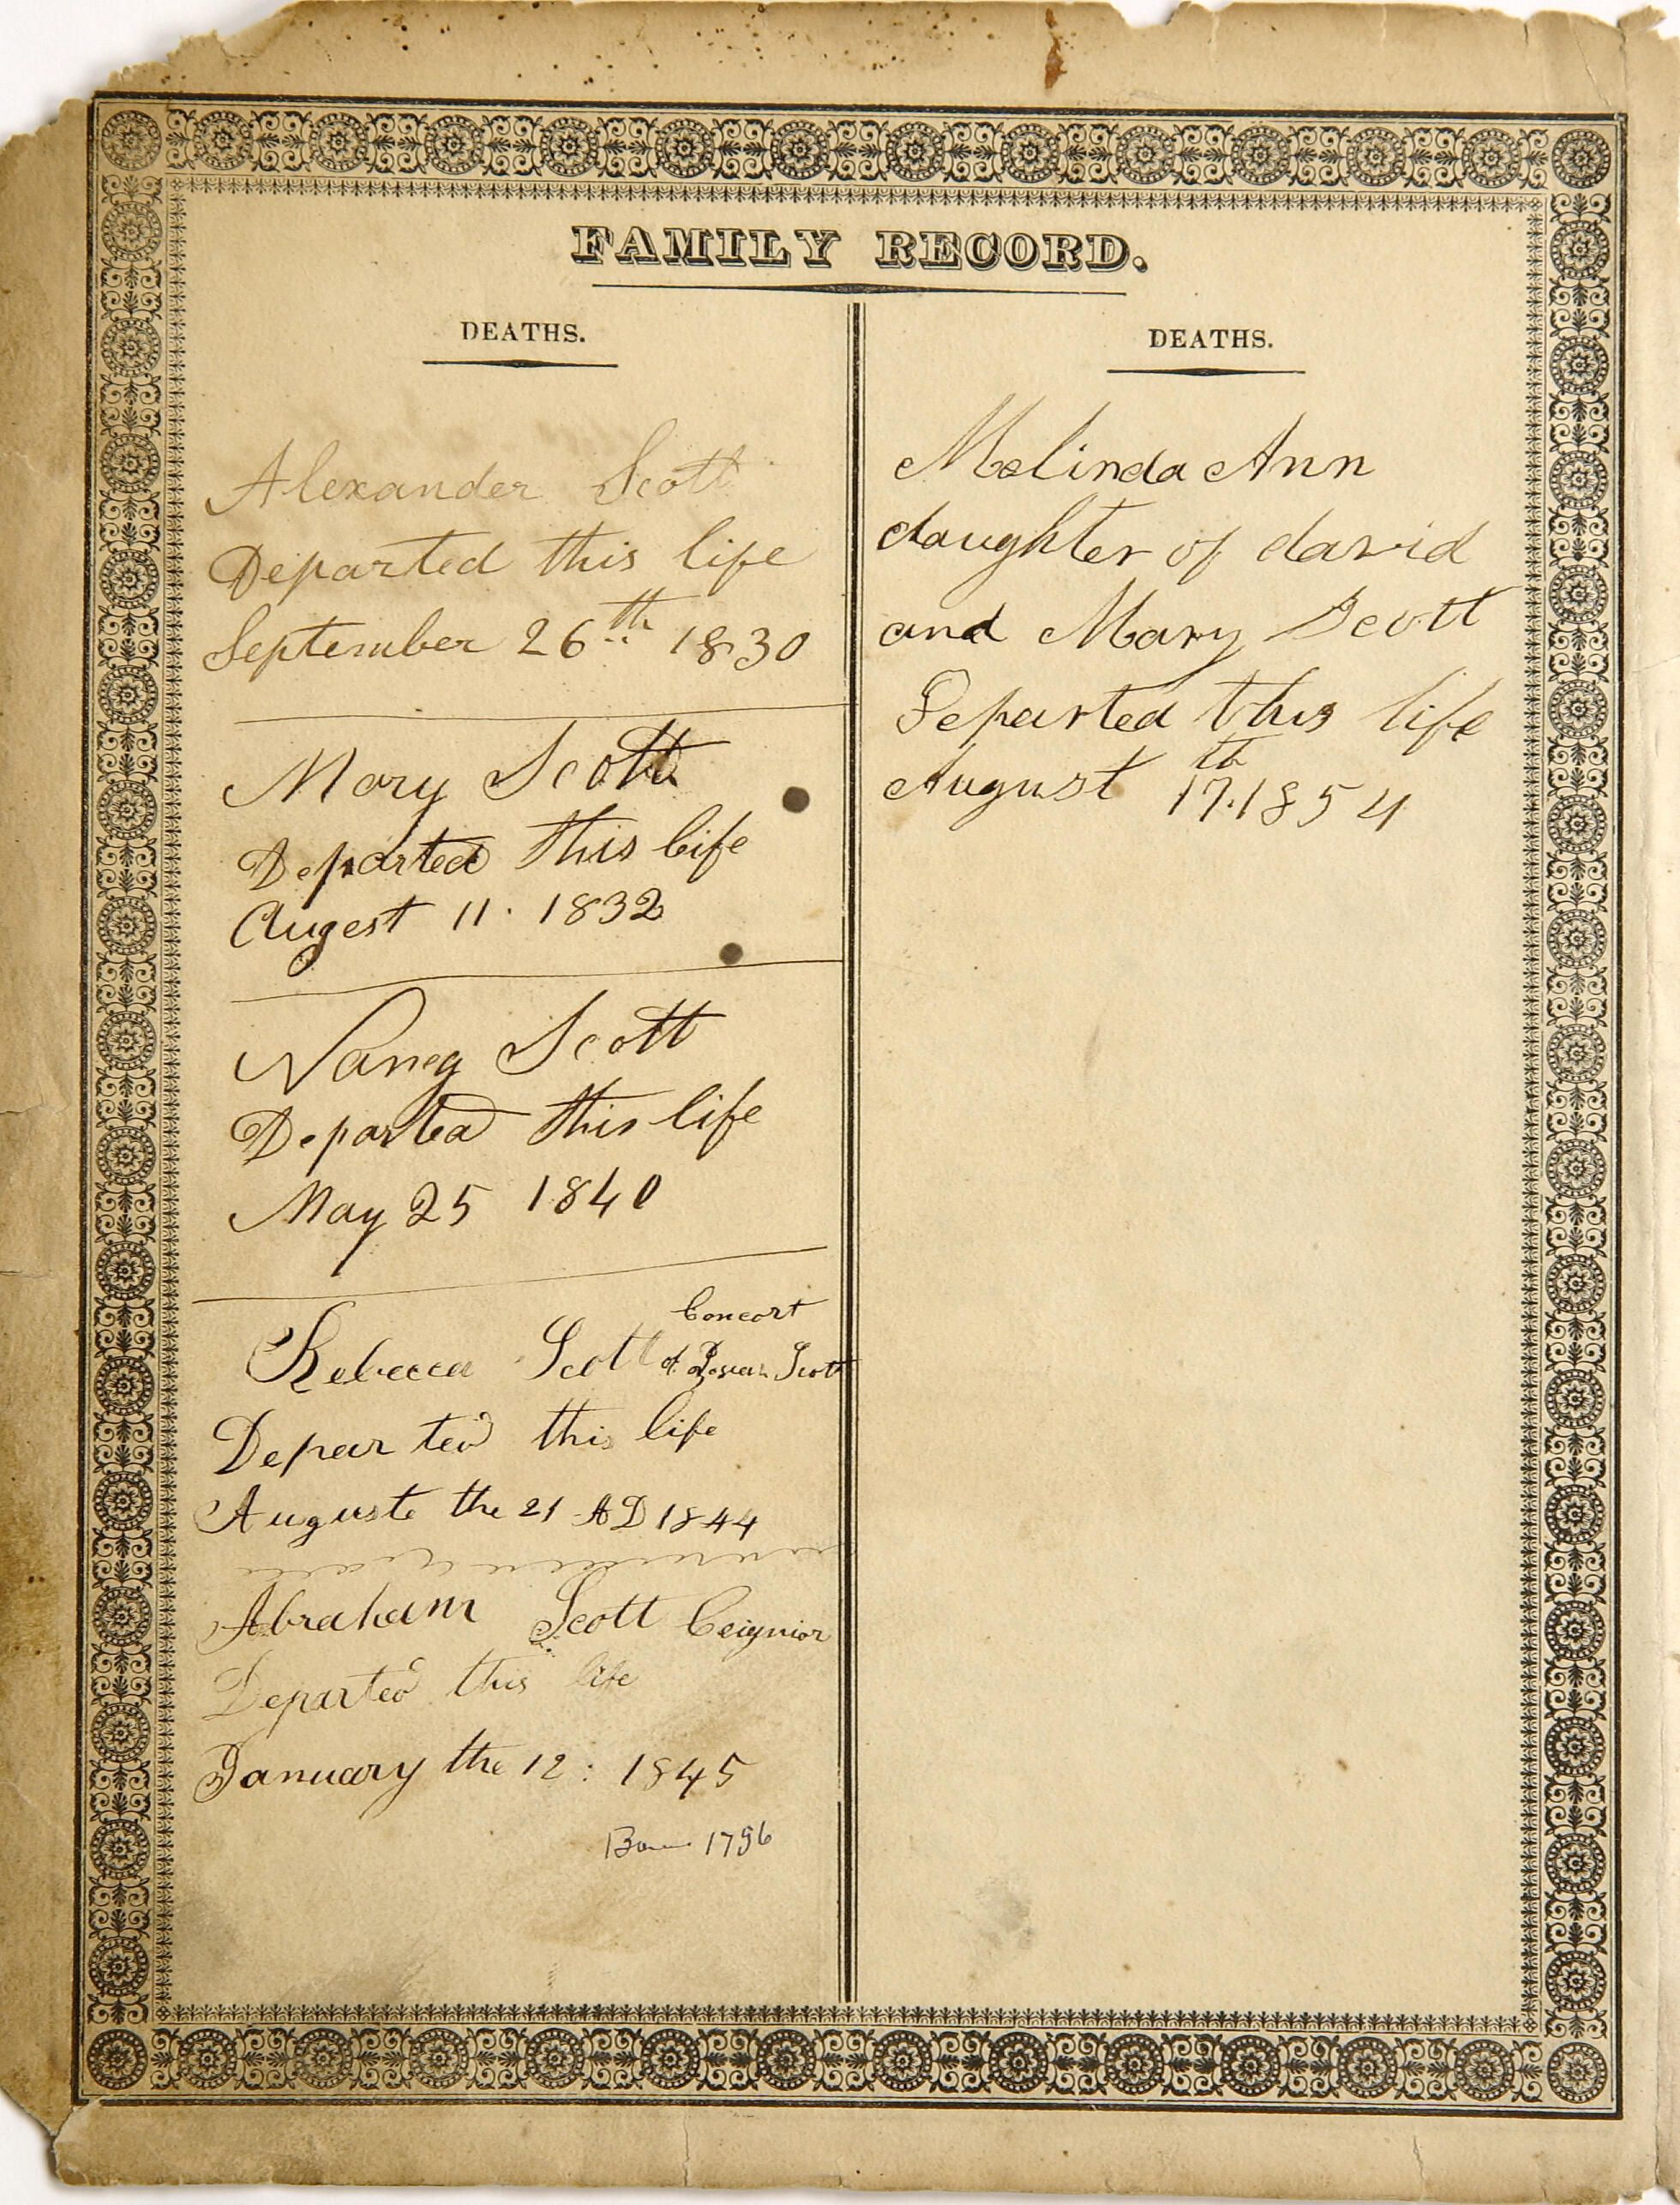 FAMILY RECORD.
DEATHS.
Alexander Scott
Departed this life
September 26th 1830
Mary Scott
Departed this life
Augest 11. 1832
Nancy Scott
Departed this life
May 25 1840
Concort
Rebecca Scott of Josiah Scott
Departed this life
Auguste the 21 AD 1844
Abraham Scott Ceignior
Departed this life
January the 12: 1845
Born 1756
DEATHS.
Melinda Ann
daughter of david
and Mary Scott
Departed this life
August 17th. 1854